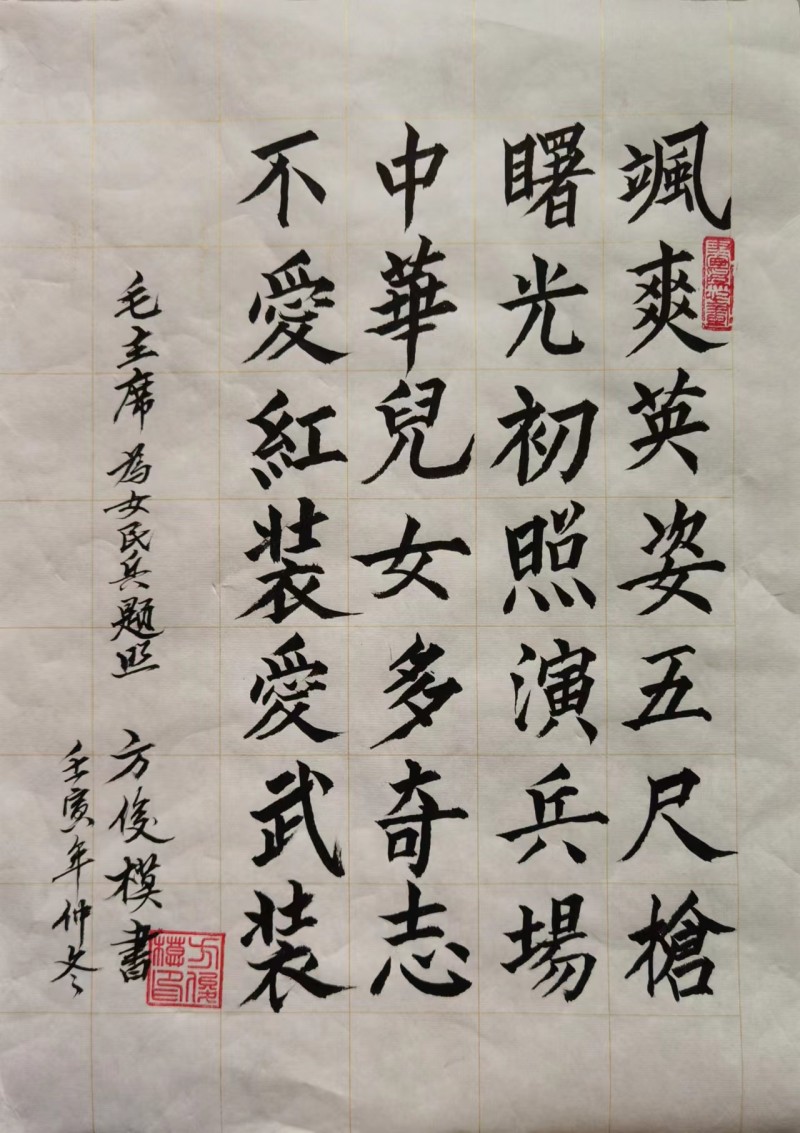 颯爽英姿五尺槍
曙光初照演兵場
中華兒女多奇志
不愛紅裝愛武裝
毛主席為女民兵題照 方俊模書
壬寅年仲冬
方俊模印